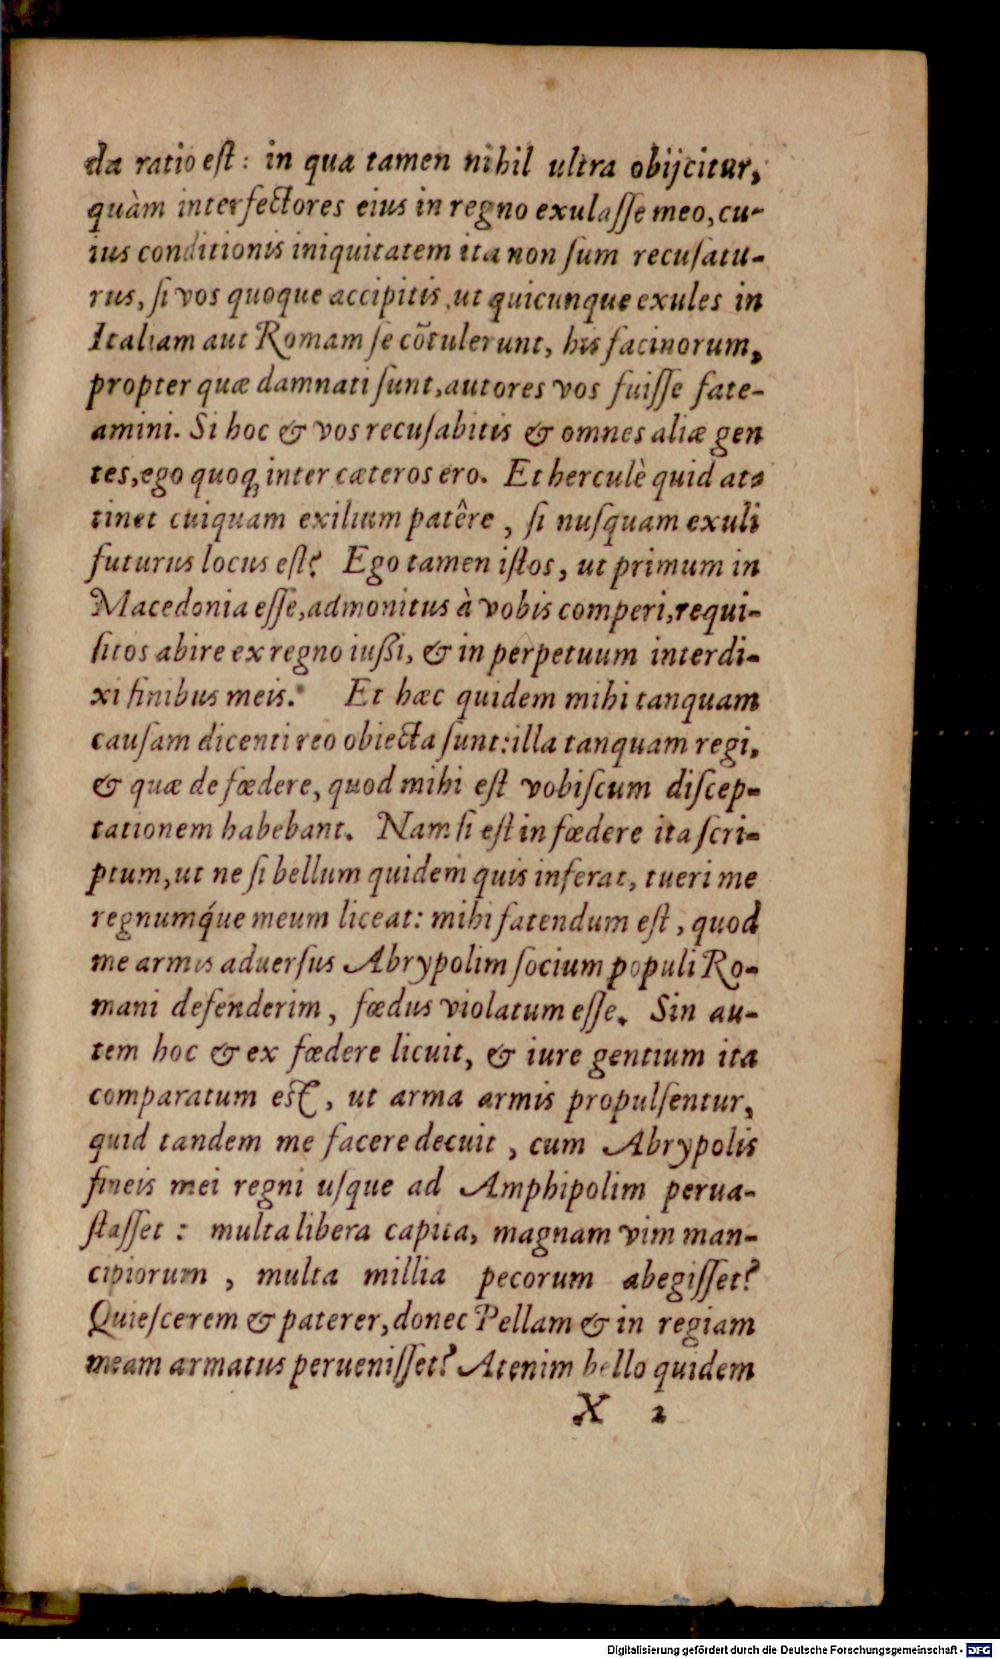 da ratio eſt: in qua tamen nihil ultra obijcitur,
quàm interfectores eius in regno exulaſſe meo, cu-
ius conditionis iniquitatem ita non ſum recuſatu-
rus, ſi vos quoque accipitis, ut quicunque exules in
Italiam aut Romam ſe cõtulerunt, his facinorum,
propter quæ damnati ſunt, autores vos fuiſſe fate-
amini. Si hoc & vos recuſabitis & omnes aliæ gen
tes, ego quoq; inter cæteros ero. Et herculè quid at-
tinet cuiquam exilium patêre, ſi nuſquam exuli
futurus locus eſt? Ego tamen iſtos, ut primum in
Macedonia eſſe, admonitus à vobis comperi, requi-
ſitos abire ex regno iuſſi, & in perpetuum interdi-
xi finibus meis. Et hæc quidem mihi tanquam
cauſam dicenti reo obiecta ſunt: illa tanquam regi,
& quæ de fœdere, quod mihi eſt vobiſcum diſcep-
tationem habebant. Nam ſi eſt in fœdere ita ſcri-
ptum, ut ne ſi bellum quidem quis inferat, tueri me
regnumq́ue meum liceat: mihi fatendum eſt, quod
me armis aduerſus Abrypolim ſocium populi Ro-
mani defenderim, fœdus violatum eſſe. Sin au-
tem hoc & ex fœdere licuit, & iure gentium ita
comparatum eſt, ut arma armis propulſentur,
quid tandem me facere decuit, cum Abrypolis
fineis mei regni uſque ad Amphipolim perua-
ſtaſſet: multa libera capita, magnam vim man-
cipiorum, multa millia pecorum abegiſſet?
Quieſcerem & paterer, donec Pellam & in regiam
meam armatus perueniſſet? Atenim bello quidem
X 2
Digitalisierung gefördert durch die Deutsche Forschungsgemeinschaft - DFG